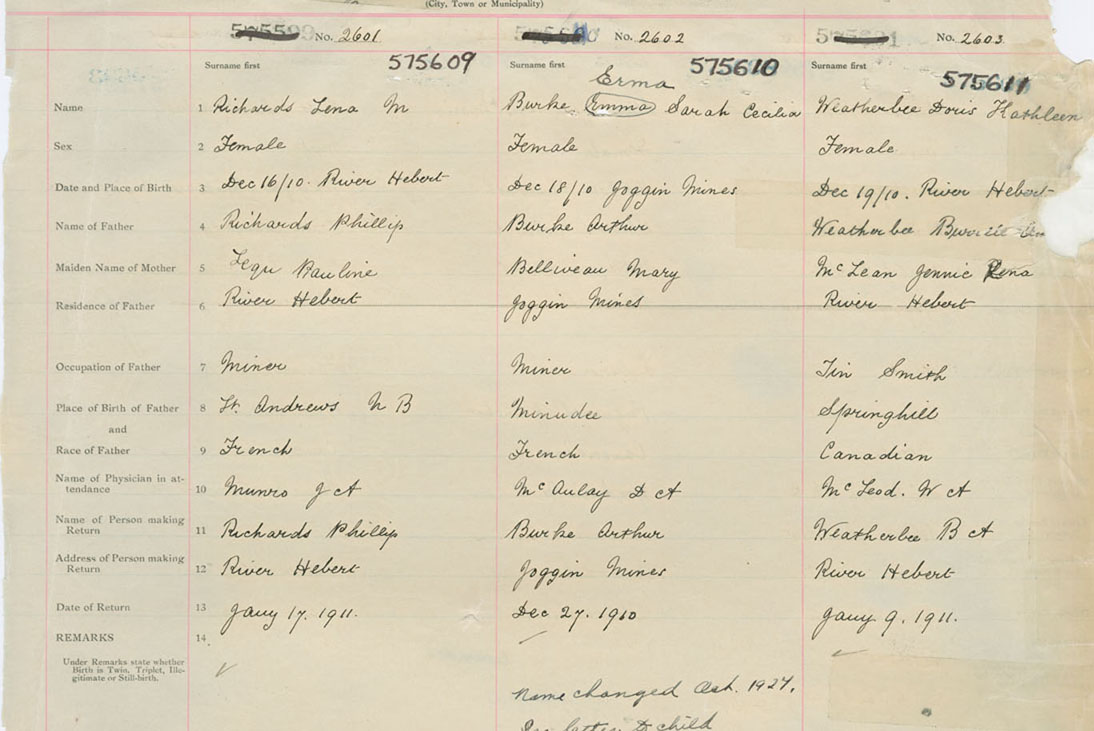 (City, Town or Municipality)
No. 2601 No. 2602 No. 2603
Surname first 575609 Surname first 575610 Surname first 575611
Erma
Name 1 Richards Lena M Burke Emma Sarah Cecilia Weatherbee Doris Kathleen
Sex 2 Female Female Female
Date and Place of Birth 3 Dec 16/10. River Hebert Dec 18/10 Joggin Mines Dec 19/10. River Hebert
Name of Father 4 Richards Phillip Burke Arthur Weatherbee
Maiden Name of Mother 5 Pauline Belliveau Mary McLean Jennie Lena
Residence of Father 6 River Hebert Joggin Mines River Hebert
Occupation of Father 7 Miner Miner Tin Smith
Place of Birth of Father 8 St. Andrews N B Minudee Springhill
and
Race of Father 9 French French Canadian
Name of Physician in at-
tendance 10 Munro J A McAulay D A McLeod. W A
Name of Person making
Return 11 Richards Phillip Burke Arthur Weatherbee B A
Address of Person making
Return 12 River Hebert Joggin Mines River Hebert
Date of Return 13 Jany 17. 1911. Dec 27. 1910 Jany 9. 1911.
REMARKS 14
Under Remarks state whether
Birth is Twin, Triplet, Ille-
gitimate or Still-birth.
Name changed Oct. 1927.
letter child